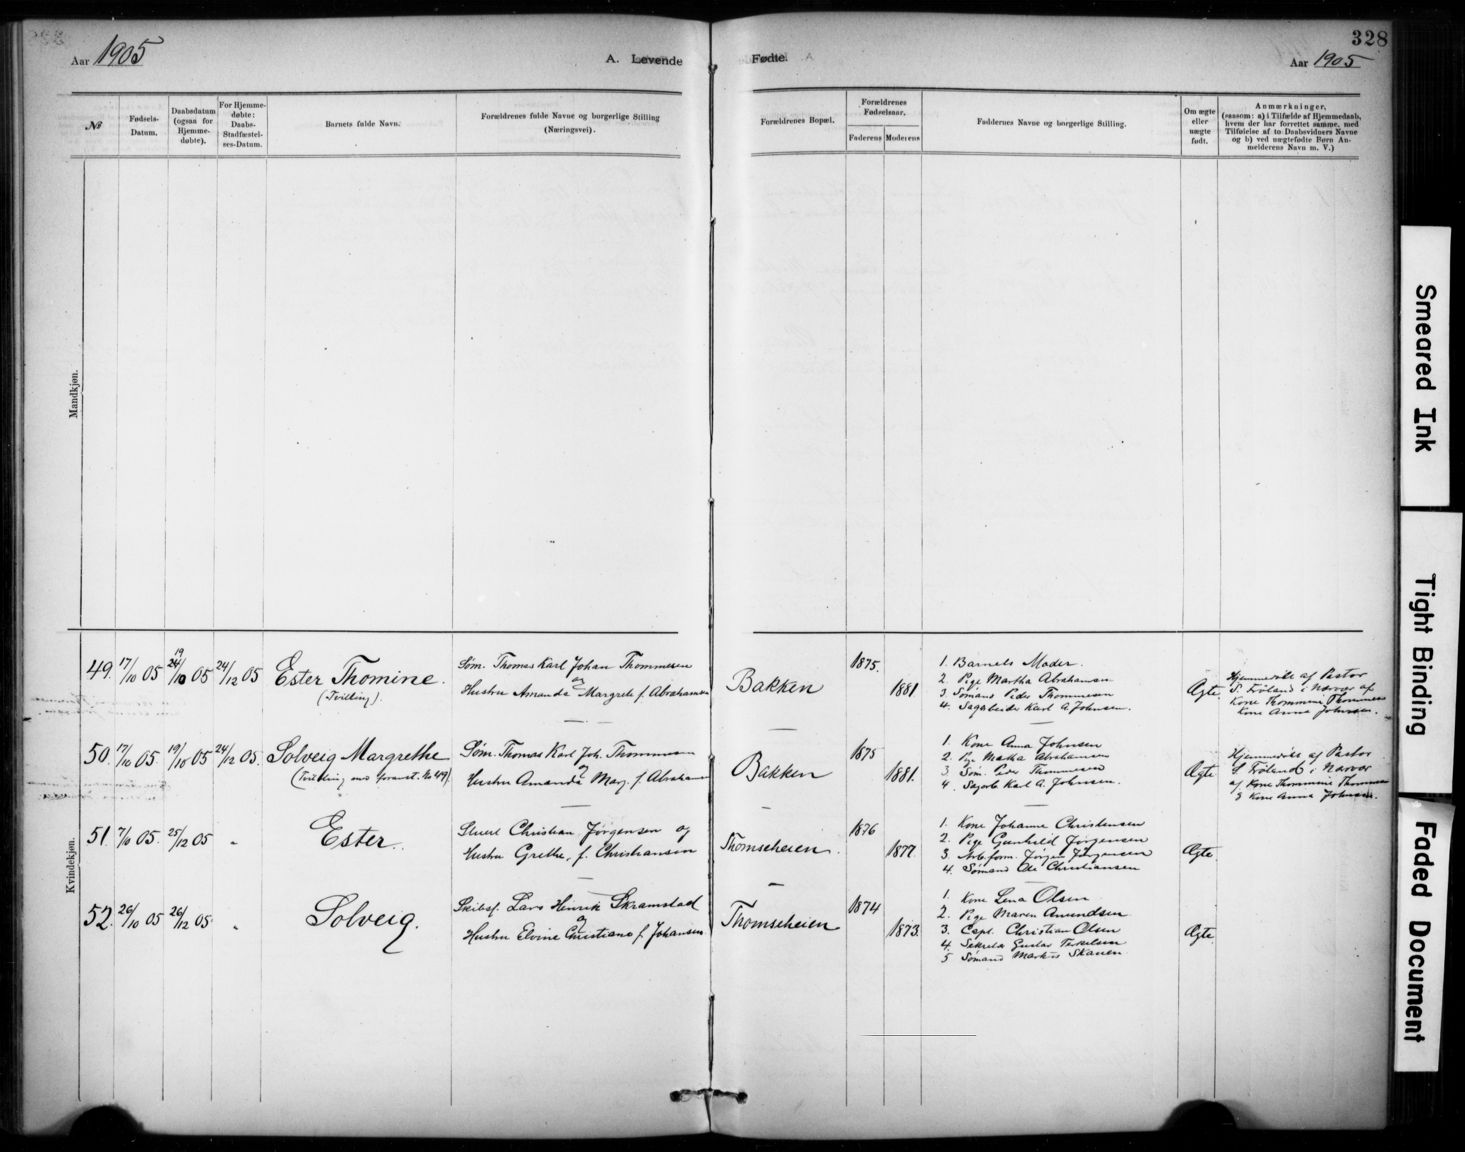 Aar 1905
A. Levende
Fødte.
Aar 1905
328
№
Fødsels-
Datum.
Daabsdatum
(ogsaa for
Hjemme-
døbte).
For Hjemme-
døbte:
Daabs-
Stadfæstel-
ses-Datum.
Barnets fulde Navn.
Forældrenes fulde Navne og borgerlige Stilling
(Næringsvei).
Forældrenes Bopæl.
Forældrenes
Fødselsaar.
Faderens
Moderens
Faddernes Navne og borgerlige Stilling.
Om ægte
eller
uægte
født.
Anmærkninger,
(saasom: a) i Tilfælde af Hjemmedaab,
hvem der har forrettet samme, med
Tilføielse af to Daabsvidners Navne
og b) ved uægtefødte Børn An-
melderens Navn m. V.)
Mandkjøn.
Kvindekjøn.
49. 17/10 05 19 24/10 05 24/12 05 Ester Thomine.
(Tvilling).
Søm. Thomas Karl Johan Thommesen
og
Hustru Amanda Margrete f. Abrahamsen
Bakken
1875.
1881
1. Barnets Moder.
2. Pige Martha Abrahamsen
3. Sømand Peder Thommesen
4. Karl A. Johnsen.
Ægte
Hjemmedøbt af Pastor
S. Frøland i Nærvær af
Kone Thommine Thommesen
Kone Anna Johnsen.
50. 17/10 05 19/10 05 24/12 05. Solveig Margrethe
(Tvilling med foranst. No 49).
Søm. Thomas Karl Joh. Thommesen
og
Hustru Amanda Marg. f. Abrahamsen
Bakken
1875
1881.
1. Kone Anna Johnsen
2. Pige Martha Abrahamsen
3 Søm. Peder Thommesen
4. Karl A. Johnsen.
Ægte
Hjemmedøbt af Pastor
S Frøland i Nærvær
af Kone Thommine Thommesen
& Kone Anna Johnsen.
51. 7/10 05. 25/12 05 " Ester.
Stuert Christian Jørgensen og
Hustru Grethe, f. Christiansen
Thomseheien.
1876
1877
1. Kone Johanne Christensen
2. Pige Gunhild Jørgensen
3. Arb.form. Jørgen Jørgensen
4. Sømand Ole Christiansen
Ægte
52. 26/10 05 26/12 05 " Solveig.
Skibsf. Lars Henrik Skramstad
og
Hustru Elvine Christiane f. Johansen
Thomseheien
1874
1873.
1. Kone Lena Olsen
2. Pige Maren Amundsen
3. Capt. Christian Olsen
4. Gustav Terkelsen
5 Sømand Markus Skauen
Ægte
Smeared Ink
Tight Binding
Faded Document